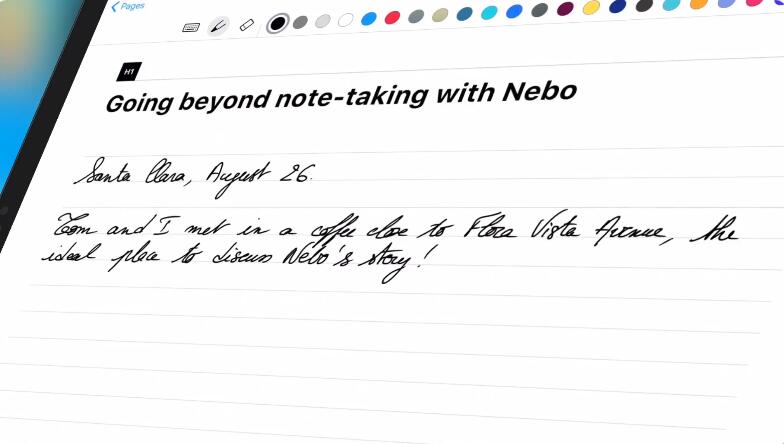 Pages
H1
Going beyond note-taking with Nebo
Santa Clara, August 26.
Tom and I met in a coffee close to Flora Vista Avenue, the
ideal place to discuss Nebo's story!